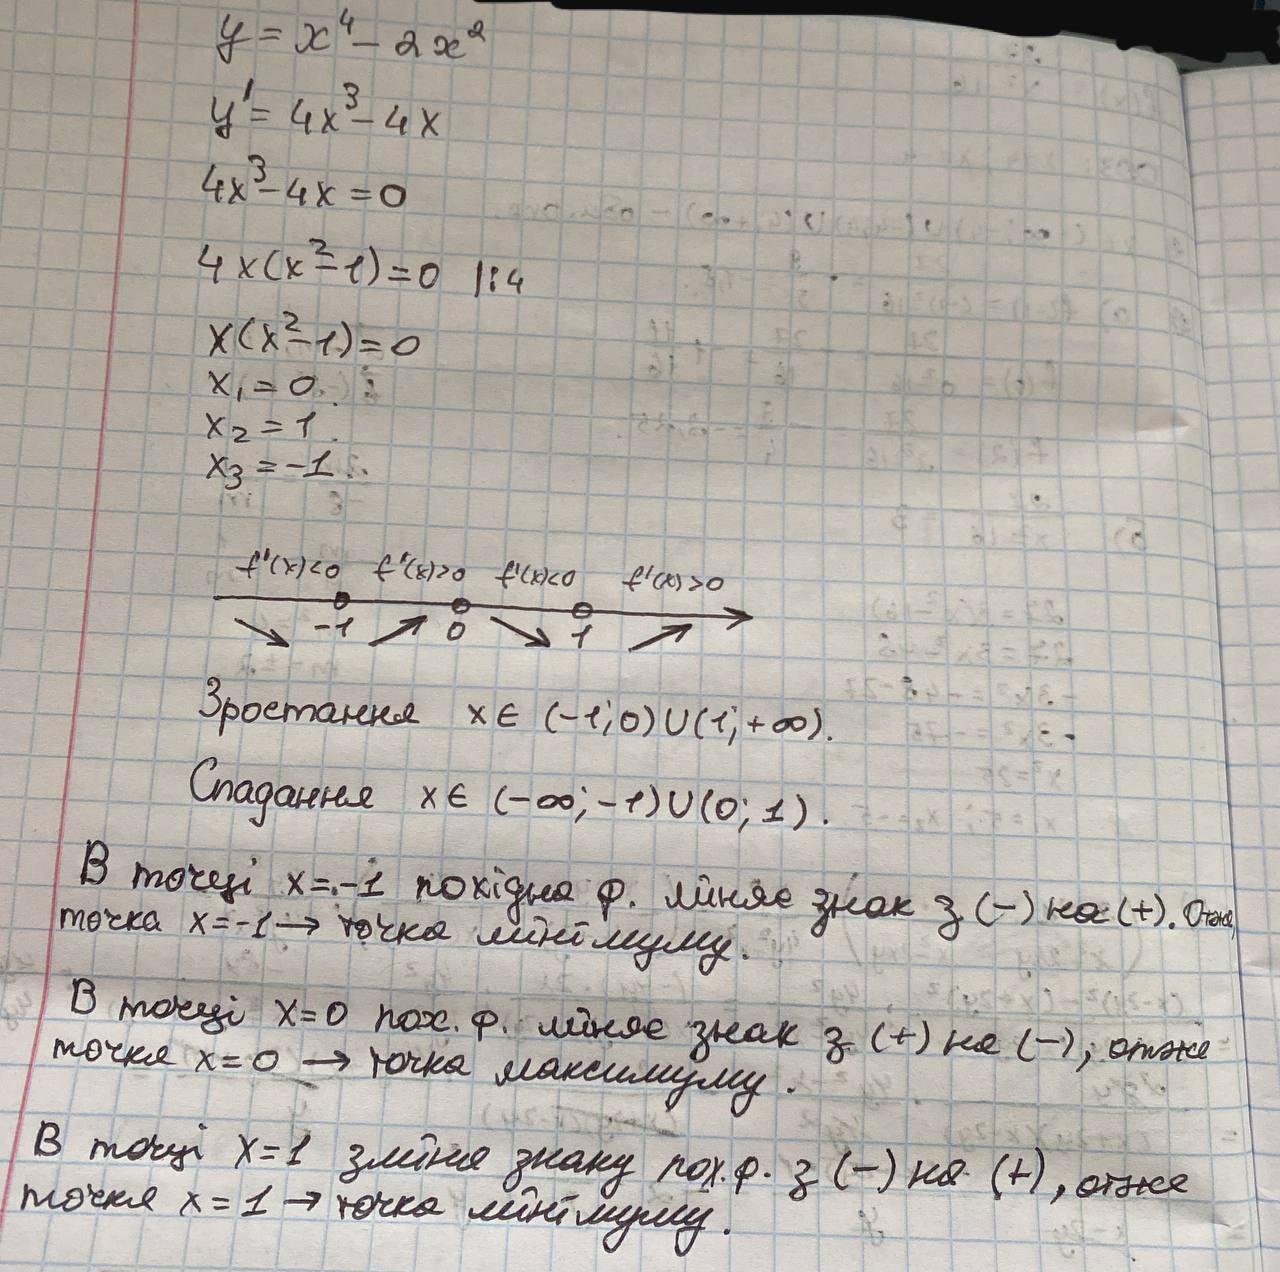 y = x⁴ - 2x²
y' = 4x³ - 4x
4x³ - 4x = 0
4x(x² - 1) = 0 |:4
x(x² - 1) = 0
x₁ = 0.
x₂ = 1.
x₃ = -1.
f'(x)<0 f'(x)>0 f'(x)<0 f'(x)>0
-1 0 1
Зростання x ∈ (-1; 0) ∪ (1; +∞).
Спадання x ∈ (-∞; -1) ∪ (0; 1).
В точці x = -1 похідна ф. міняє знак з (-) на (+). Отже,
точка x = -1 → точка мінімуму.
В точці x = 0 пох. ф. міняє знак з (+) на (-), отже
точка x = 0 → точка максимуму.
В точці x = 1 зміна знаку пох. ф. з (-) на (+), отже
точка x = 1 → точка мінімуму.